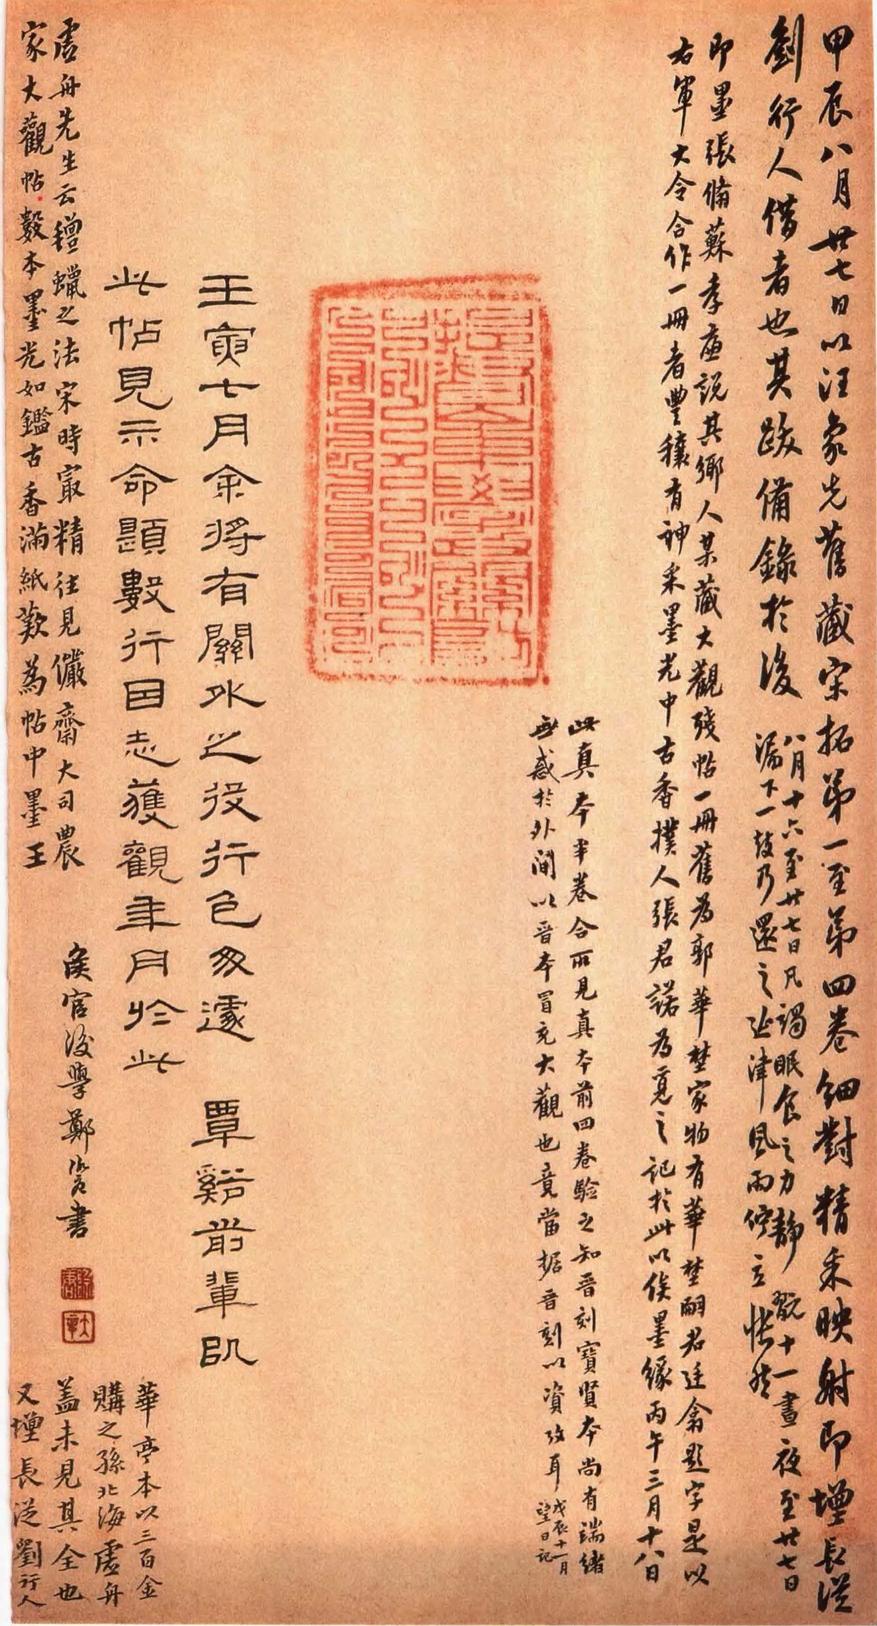 甲辰八月廿七日以汪象先舊藏宋拓第一至第四卷細對精采映射即壇長從
劉行人借者也其跋備錄於後
八月十六至廿七日凡竭眠食之力靜翫十一晝夜至廿七日
漏下一鼓乃還之延津風雨佇立悵然
即墨張脩蘇孝廉說其鄉人某藏大觀殘帖一冊舊為郭華埜家物有華埜嗣君廷翕題字是以
右軍大令合作一冊者豐穰有神采墨光中古香撲人張君諾為覓之記於此以俟墨緣丙午三月十八日
此真本半卷合所見真本前四卷驗之知晉刻寶賢本尚有端緒
無惑於外間以晉本冒充大觀也竟當据晉刻以資攷耳
戊辰十一月
望日記
壬寅七月余將有關外之役行色匆遽 覃谿前輩以
此帖見示命題數行因志獲觀年月於此
虛舟先生云氊蠟之法宋時最精往見儼齋大司農
家大觀帖數本墨光如鑑古香滿紙歎為帖中墨王
侯官後學鄭 書
華亭本以三百金
購之孫北海虛舟
蓋未見其全也
又壇長從劉行人